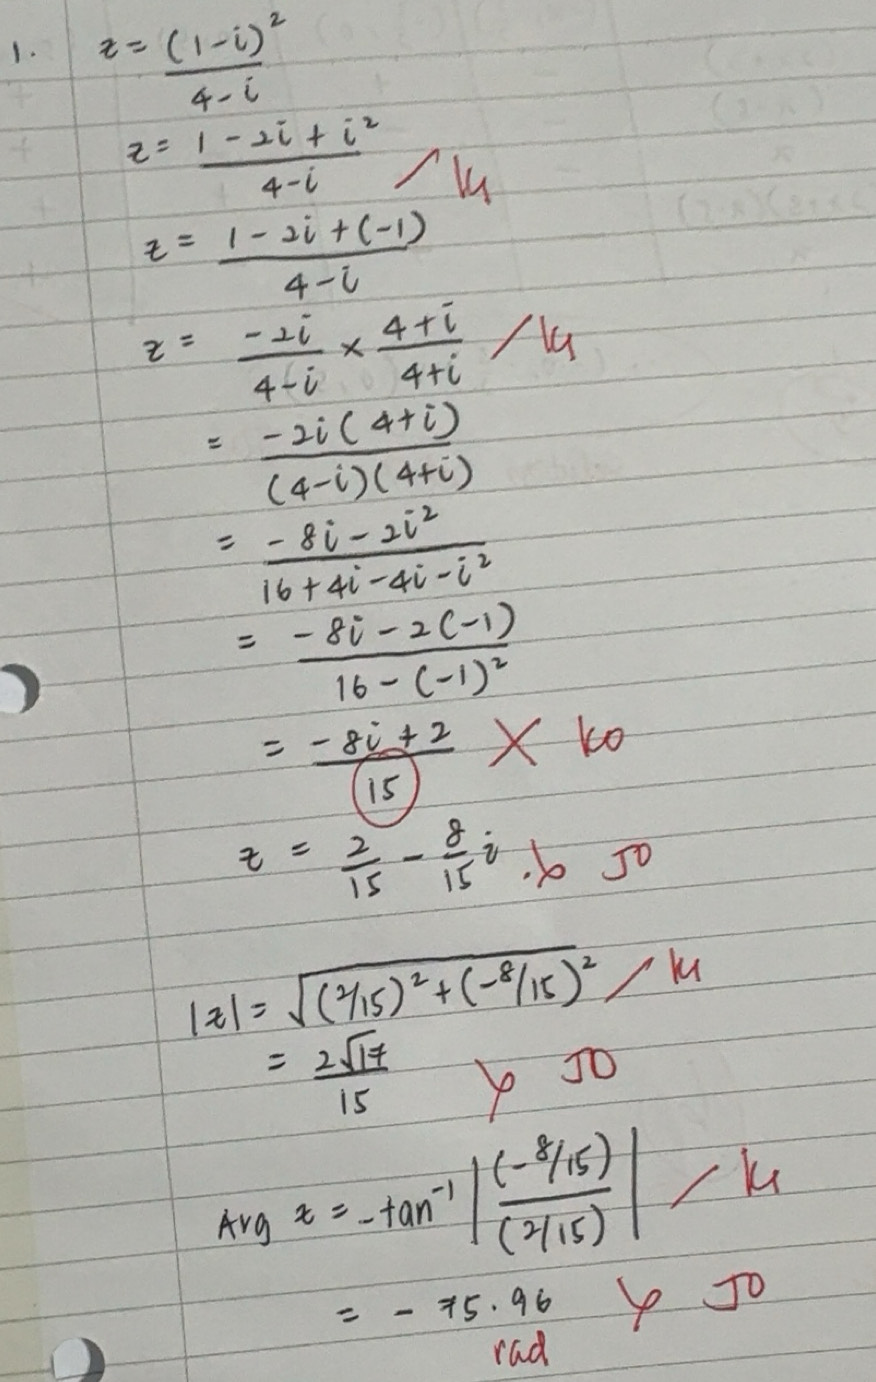 1. z = (1-i)² / 4-i
z = 1 - 2i + i² / 4-i / K1
z = 1 - 2i + (-1) / 4-i
z = -2i / 4-i × 4+i / 4+i / K1
= -2i(4+i) / (4-i)(4+i)
= -8i - 2i² / 16+4i-4i-i²
= -8i - 2(-1) / 16-(-1)²
= -8i + 2 / 15 X K0
z = 2/15 - 8/15 i J0
|z| = √(2/15)² + (-8/15)² / K1
= 2√17 / 15 J0
Arg z = -tan⁻¹ |(-8/15) / (2/15)| / K1
= -75.96 J0
rad